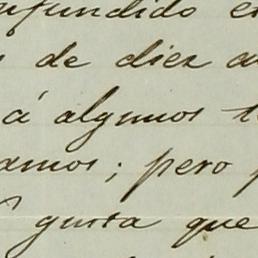 nfundido e
s de diez a
á algunos t
amos; pero p
gusta que